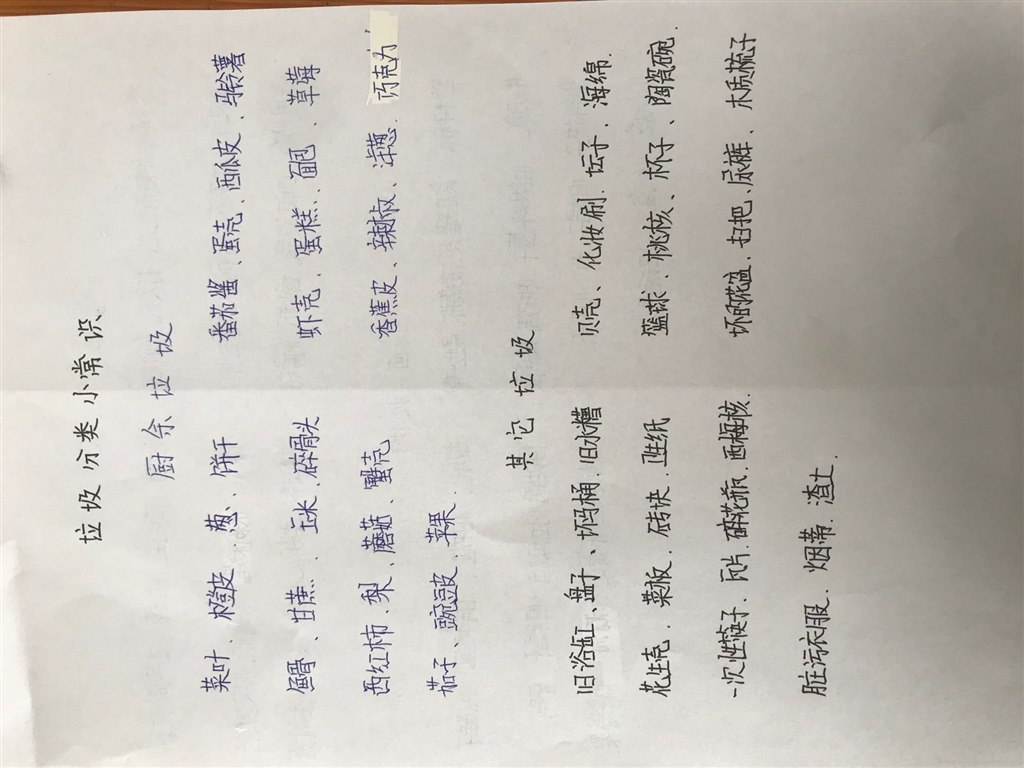 垃圾分类小常识、
厨余垃圾
菜叶、橙皮、葱、饼干、番茄酱、蛋壳、西瓜皮、马铃薯
鱼骨、甘蔗、玉米、碎骨头、虾壳、蛋糕、面包、草莓
西红柿、梨、蘑菇、蟹壳、香蕉皮、辣椒、洋葱、巧克力
茄子、豌豆皮、苹果.
其它垃圾
旧浴缸、盘子、坏马桶、旧水槽、贝壳、化妆刷、坛子、海绵.
花生壳、菜板、砖块、卫生纸、篮球、桃核、杯子、陶瓷碗.
一次性筷子、瓦片、碎花瓶、西梅核、坏的花盆、扫把、尿裤、木质梳子
脏污衣服、烟蒂、渣土.